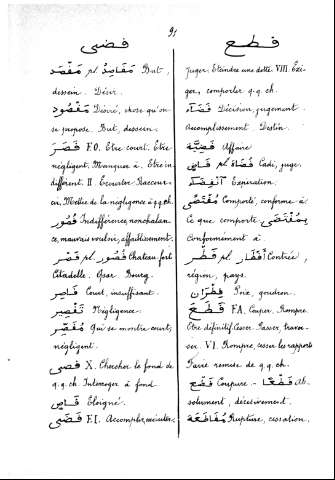 91
فضى
مَقْصَد pl. مَقَاصِد But,
dessein. Désir.
مَقْصُود Désiré, chose qu'on
se propose. But, dessein.
قَصَرَ F.O. Etre court. Etre
négligent. Manquer à. Etre in
différent. II. Ecourter. Raccour-
cir. Mettre de la négligence à q.q.ch.
قُصُور Indifférence, nonchalan
ce, mauvais vouloir, affaiblissement.
قَصْر pl. قُصُور Chateau fort
Citadelle. Qsar. Bourg.
قَاصِر Court, insuffisant.
تَقْصِير Négligence.
مُقَصِّر Qui se montre court;
négligent.
قصى X. Chercher le fond de
q.q.ch. Interroger à fond.
قَاصٍ Eloigné.
قَضَى F.I. Accomplir, exécuter.
قطع
juger. Eteindre une dette. VIII. Exi-
ger, comporter q.q.ch.
قَضَاء Décision, jugement.
Accomplissement. Destin.
قَضِيَّة Affaire
قَاضٍ pl. قُضَاة Cadi, juge.
Expiration.
مُقْتَضَى Comporté, conforme à
Ce que comporte بِمُقْتَضَى
Conformément à.
قُطْر pl. أَقْطَار Contrée,
région, pays.
قَطِرَان Poix, goudron.
قَطَعَ F.A. Couper. Rompre
Etre définitif. Cesser. Passer, traver-
ser. VI. Rompre, cesser les rapports
Faire remise de q.q.ch.
قَطْع Coupure – قَطْعًا Ab-
solument, décisivement.
مُقَاطَعَة Rupture, cessation.